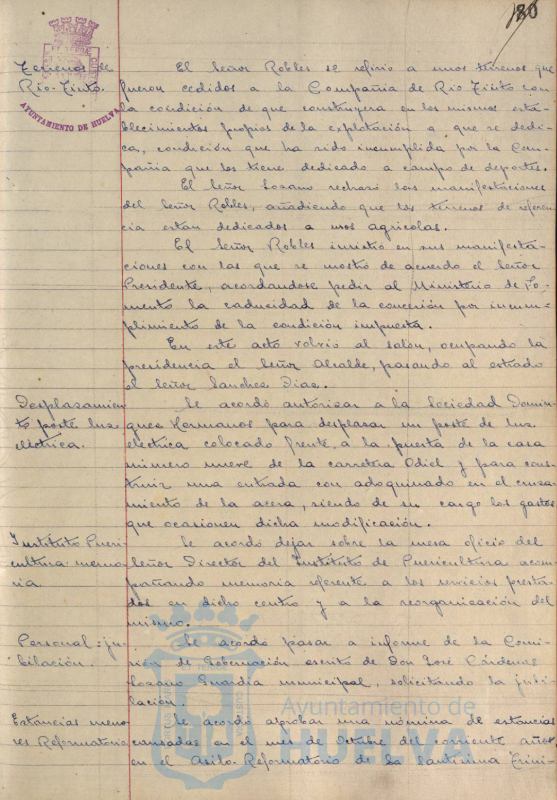 180
AYUNTAMIENTO DE HUELVA
Terrenos de
Rio-Tinto.
El Señor Robles se refirio a unos terrenos que
fueron cedidos a la Compañia de Rio Tinto con
la condición de que construyera en los mismos esta-
blecimientos propios de la explotación a que se dedi-
ca, condición que ha sido incumplida por la Com-
pañia que los tiene dedicado a campo de deportes.
El Señor Lozano rechazó las manifestaciones
del Señor Robles, añadiendo que los terrenos de referen-
cia estan dedicados a usos agricolas.
El Señor Robles insistio en sus manifesta-
ciones con las que se mostro de acuerdo el Señor
Presidente, acordandose pedir al Ministerio de Fo-
mento la caducidad de la concesión por incum-
plimiento de la condición impuesta.
En este acto volvio al salon, ocupando la
presidencia el Señor Alcalde, pasando al estrado
el Señor Sanchez Diaz.
Desplazamien-
to poste luz
electrica.
Se acordo autorizar a la Sociedad Domin-
guez Hermanos para desplazar un poste de luz
electrica colocado frente a la puerta de la casa
número nueve de la carretera Odiel y para cons-
truir una entrada con adoquinado en el cruza-
miento de la acera, siendo de su cargo los gastos
que ocasionen dicha modificación.
Instituto Pueri-
cultura memo-
ria.
Se acordo dejar sobre la mesa oficio del
Señor Director del Instituto de Puericultura acom-
pañando memoria referente a los servicios presta-
dos en dicho centro y a la reorganización del
mismo.
Personal: ju-
bilación.
Se acordo pasar a informe de la Comi-
sión de Gobernación escrito de Don José Cárdenas
Lozano Guardia municipal, solicitando la jubi-
lación.
Estancias meno-
res Reformatorio
Se acordo aprobar una nómina de estancias
causadas en el mes de Octubre del corriente año
en el Asilo-Reformatorio de la Santisima Trini-
Ayuntamiento de
HUELVA